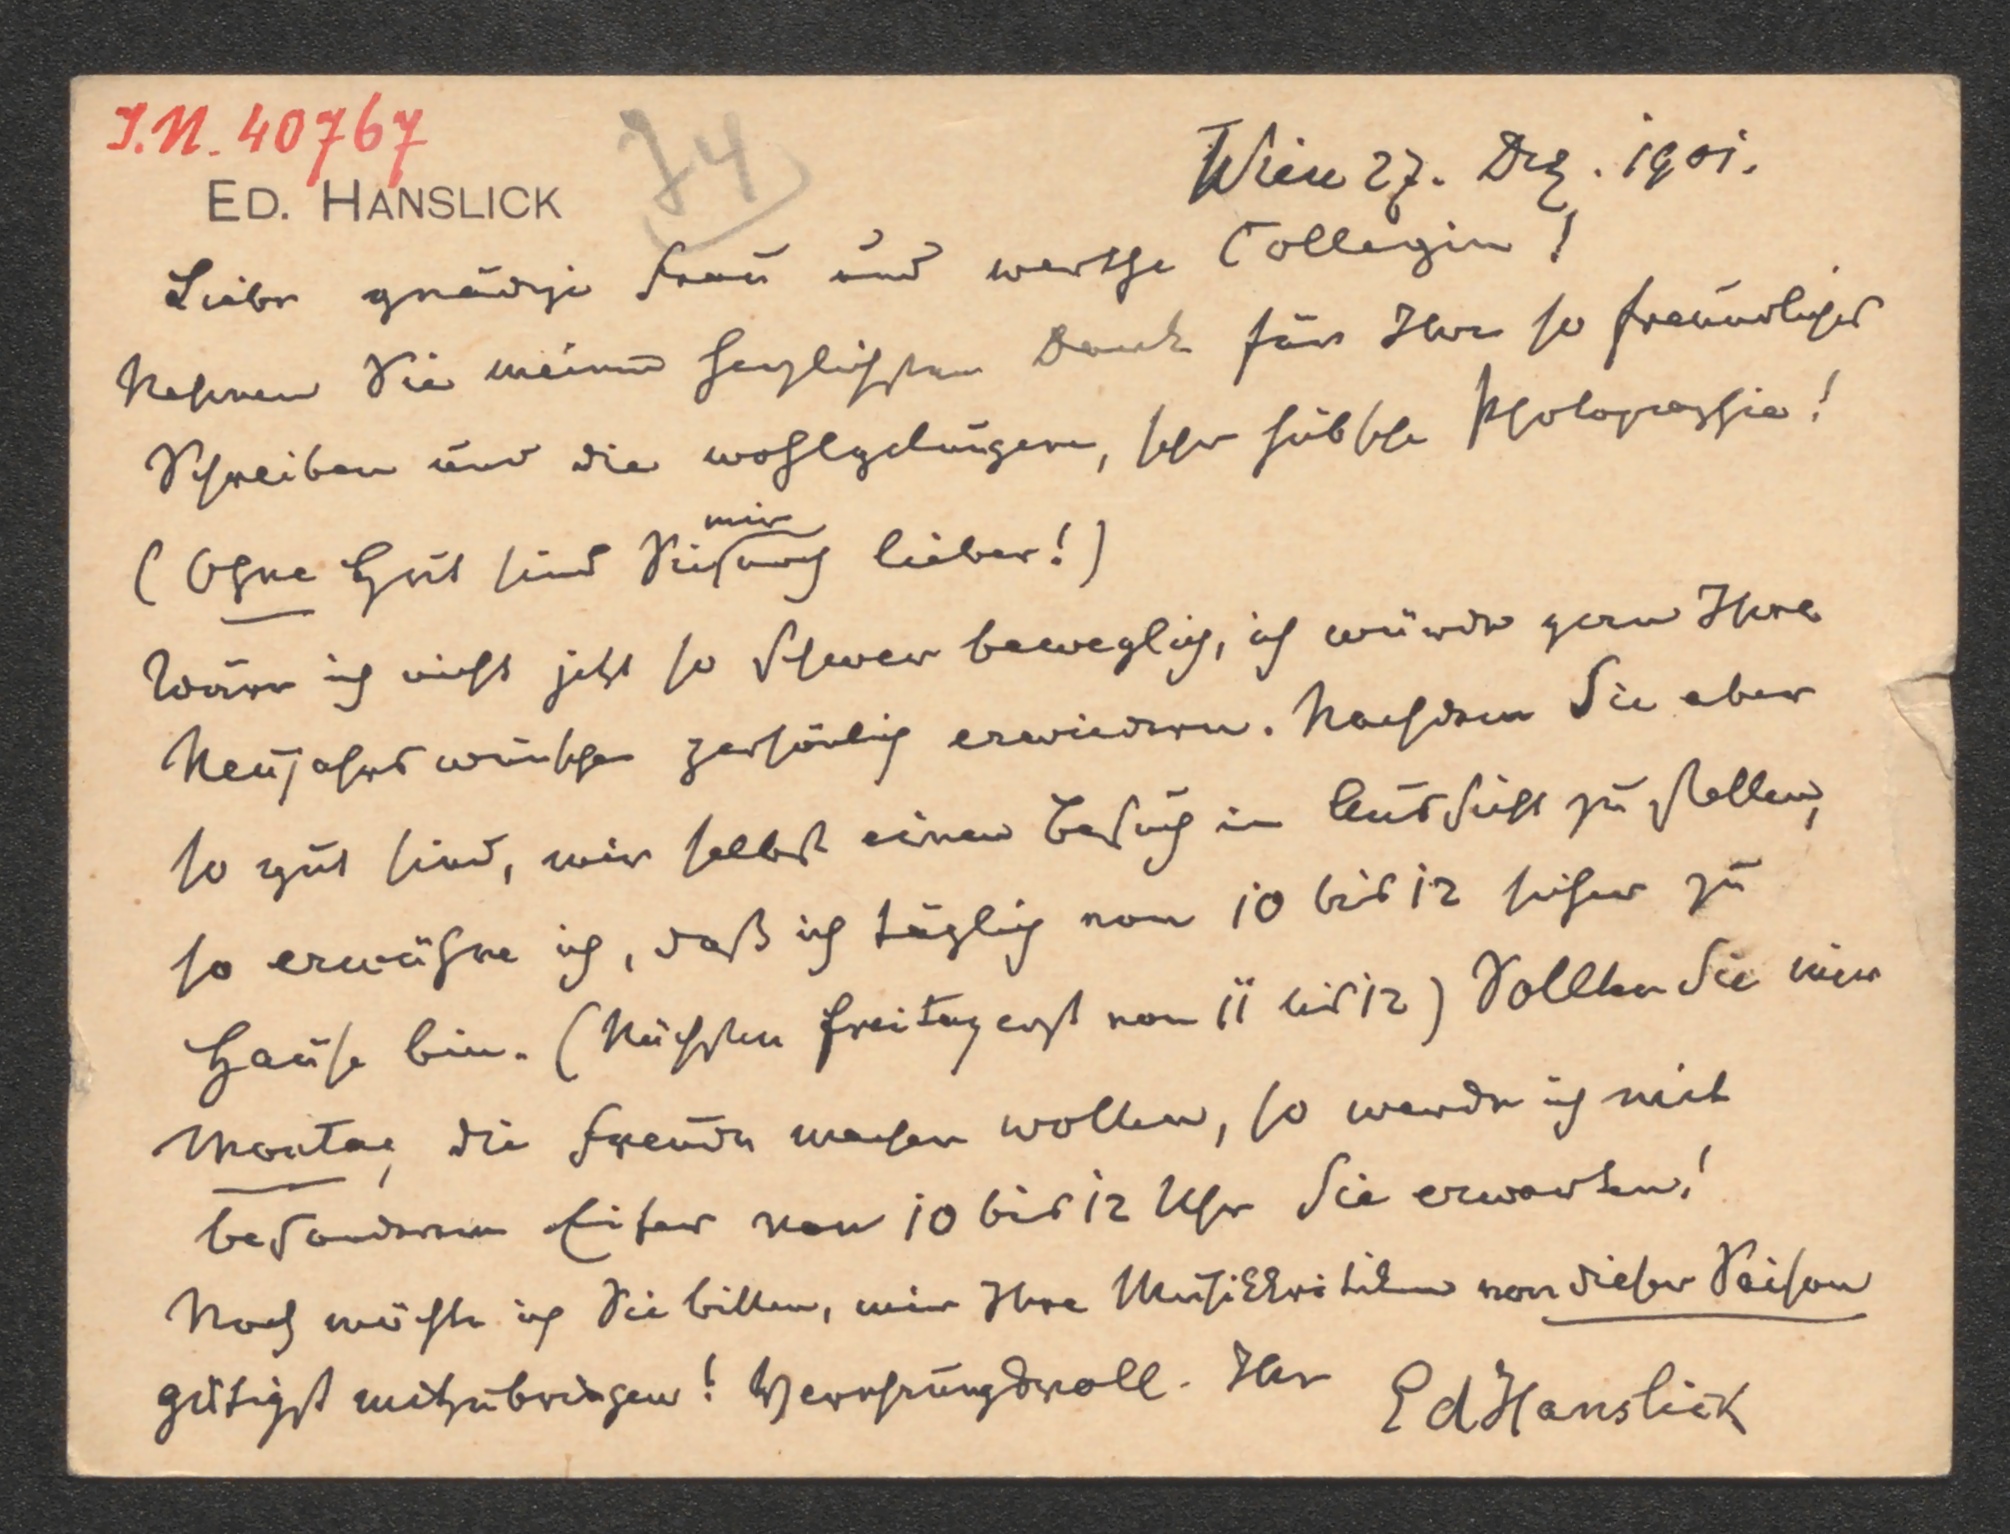 I.N. 40767
74
ED. HANSLICK
Wien 27. Dez. 1901.
Liebe gnädige Frau und werthe Collegin!
Nehmen Sie meinen herzlichsten Dank für Ihr so freundliches
Schreiben und die wohlgelungene, sehr hübsche Photographie!
(Ohne Hut sind Sie mir noch lieber!)
Wäre ich nicht jetzt so schwer beweglich, ich würde gern Ihre
Neujahrswünsche persönlich erwiedern. Nachdem Sie aber
so gut sind, mir selbst einen Besuch in Aussicht zu stellen,
so erwähne ich, daß ich täglich von 10 bis 12 sicher zu
Hause bin. (Nächsten Freitag erst von 11 bis 12) Sollten Sie mir
Montag die Freude machen wollen, so werde ich mit
besonderem Eifer von 10 bis 12 Uhr Sie erwarten!
Noch möchte ich Sie bitten, mir Ihre Musikkritiken von dieser Saison
gütigst mitzubringen! Verehrungsvoll. Ihr
Ed Hanslick